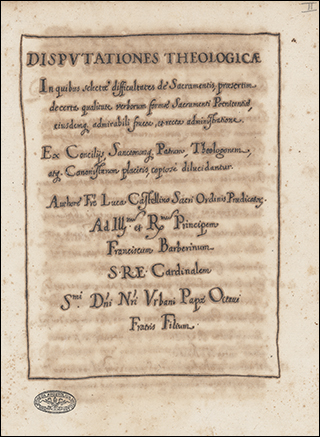 II
DISPVTATIONES THEOLOGICÆ
In quibus selectæ difficultates de Sacramentis, præsertim
de certa qualitate verborum formæ Sacramenti Pœnitentiæ,
eiusdemq; admirabili fructu, et rectæ administratione.
Ex Concilijs, Sanctorumq; Patrum, Theologorum,
atq; Canonistarum placitis, copiosè dilucidantur.
Authore Fre Luca Castellino Sacri Ordinis Prædicatorum.
Ad Illmum et Rmum Principem
Franciscum Barberinum
S.R.E. Cardinalem
Smi Dñi Nri Vrbani Papæ Octaui
Fratris Filium.